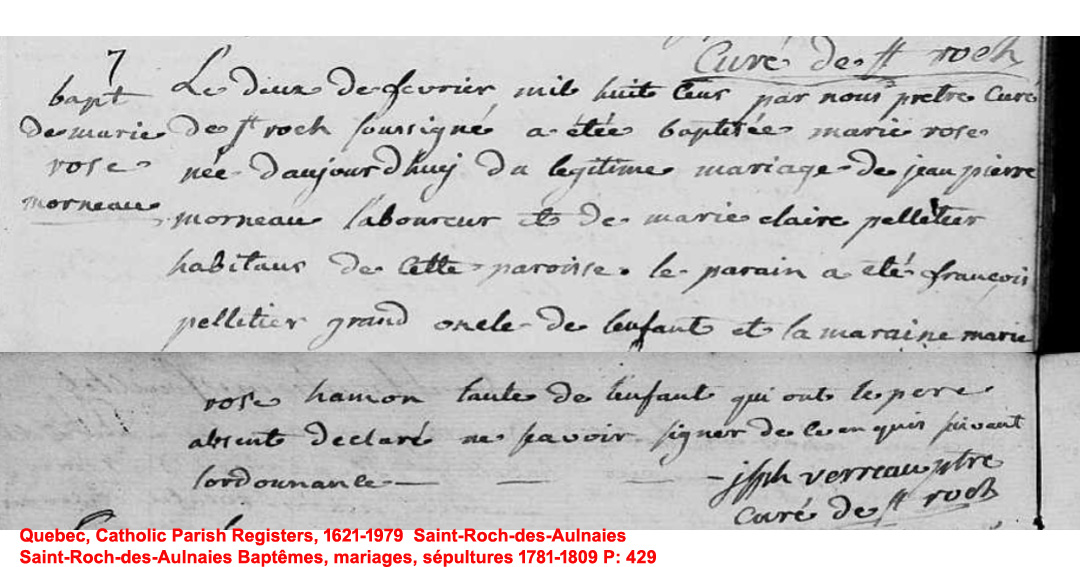 Curé de St roch
7
bapt
de marie
rose
morneau
Le deux de fevrier mil huit Cens par nous pretre Curé
de St roch soussigné a étée baptisée marie rose
née daujourdhuij du legitime mariage de jean pierre
morneau laboureur et de marie claire pelletier
habitans de Cette paroisse. le parain a été françois
pelletier grand oncle de lenfant et la maraine marie
rose hamon tante de lenfant qui ont le pere
absent declaré ne scavoir signer de ce enquis suivant
lordonnance
jsph verreau ptre
Curé de St roch
Quebec, Catholic Parish Registers, 1621-1979 Saint-Roch-des-Aulnaies
Saint-Roch-des-Aulnaies Baptêmes, mariages, sépultures 1781-1809 P: 429